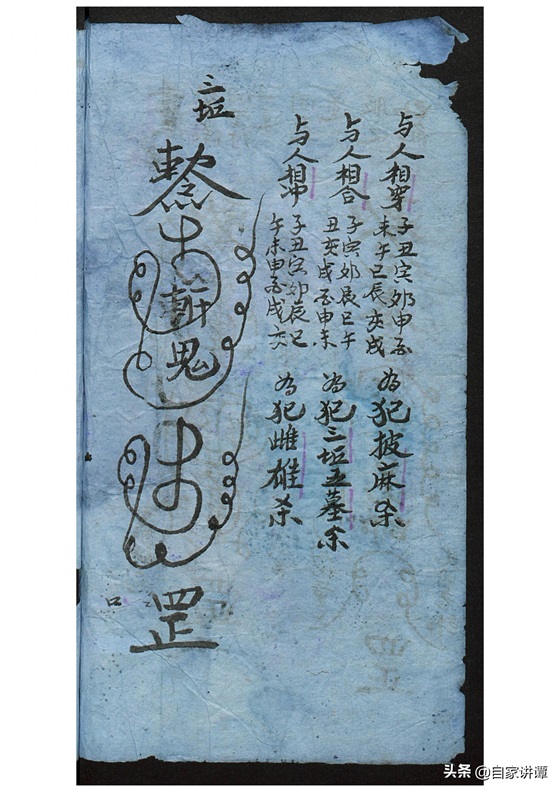 与人相穿
子丑寅卯申酉
未午巳辰亥戌
为犯披麻杀
与人相合
子寅卯辰巳午
丑亥戌酉申未
为犯三坵五墓杀
与人相冲
子丑寅卯辰巳
午未申酉戌亥
为犯雌雄杀
三坵
斬鬼
罡
口
头条 @自家讲谭